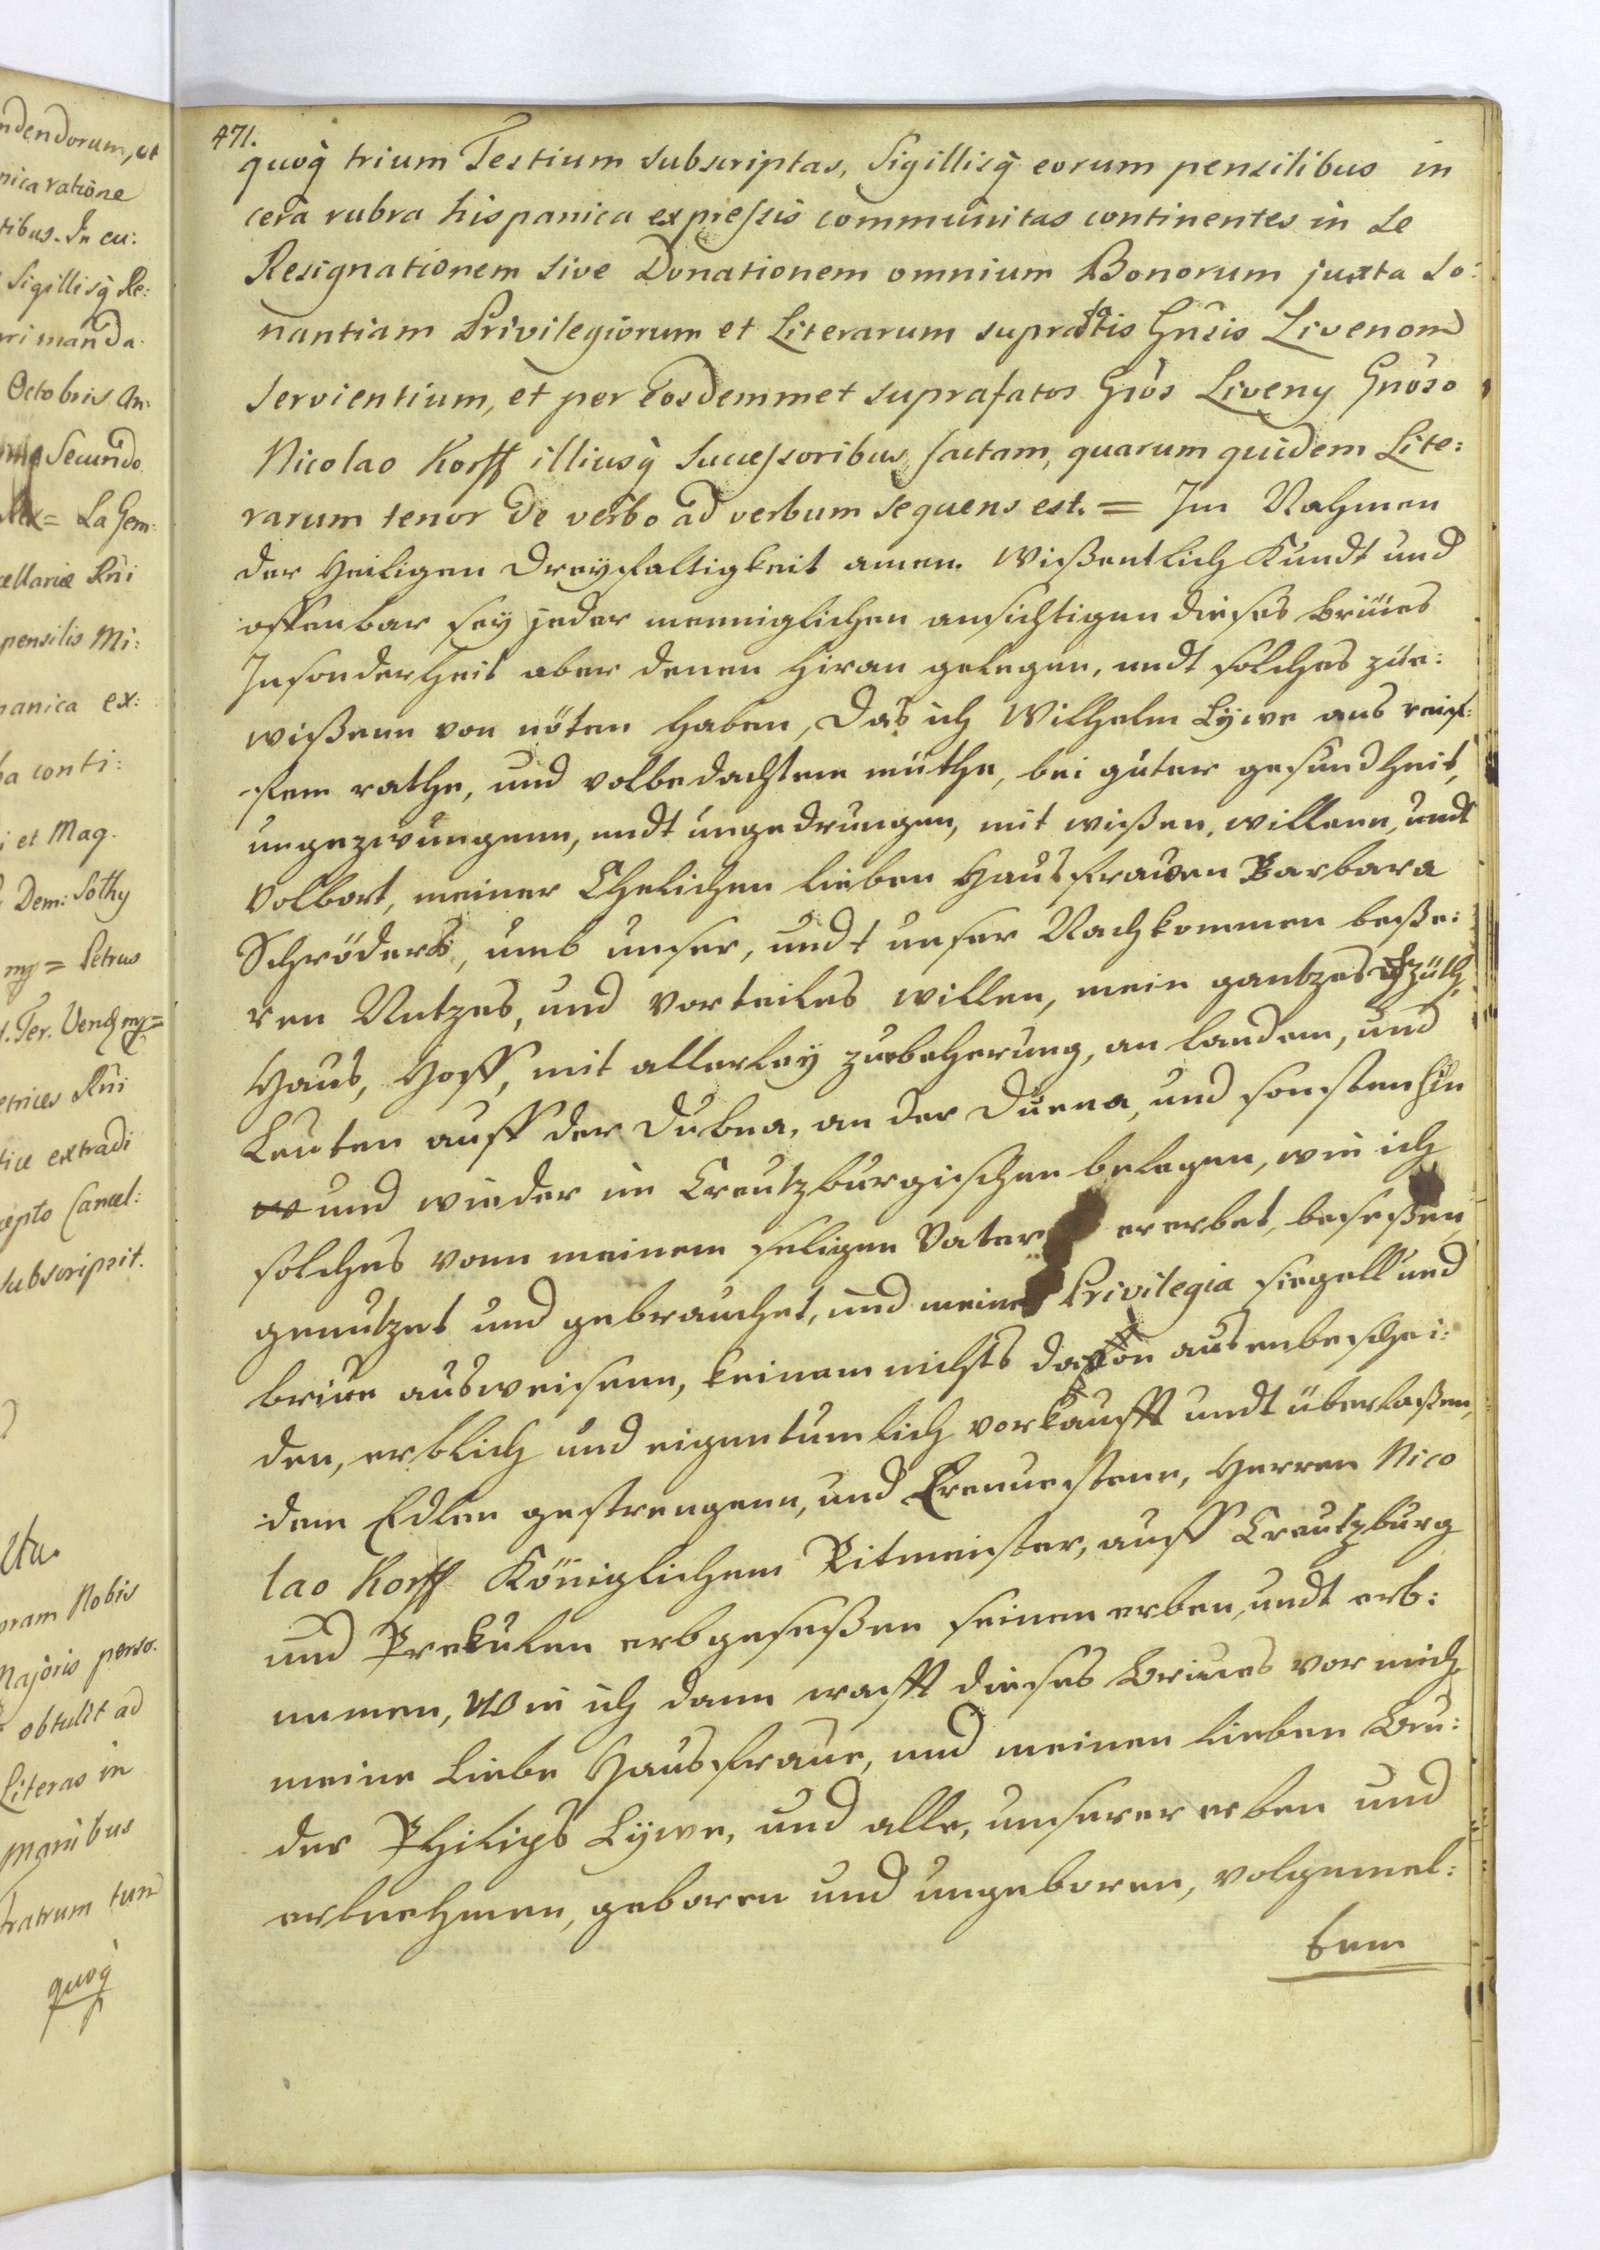 ndendorum, et
nica ratione
tibus. In cu:
Sigillisq̀ Re:
rimanda.
Octobris An:
Secundo
= La Gem:
cellariæ Rni
pensilis Mi:
panica ex:
conti:
et Mag.
Dem: Sothy
mp = Petrus
Ter. Vend mp=
etrices Rni
extradi
cepto Cancel:
subscripsit.
oram Nobis
Majoris perso:
obtulit ad
Literas in
Manibus
tratrum tum
quoq̀
471.
quoq̀ trium Testium subscriptas, Sigillisq̀ eorum pensilibus in
cera rubra hispanica expressis communitas continentes in se
Resignationem sive Donationem omnium Bonorum juxta so:
nantiam Privilegiorum et Literarum supradtis Gnsis Livenom
servientium, et per Eosdemmet suprafatos Gnos Liveny Gnoso
Nicolao Korff illiusq̀ Successoribus factam, quarum quidem Lite:
rarum tenor de verbo ad verbum sequens est. = Im Nahmen
der Heiligen Dreyfaltigkeit amen. Wißentlich Kundt und
offenbar sey jeder menniglichen ansichtigen dieses briues
Insonderheit aber denen hiran gelegen, undt solches zue:
wißenn von nöten haben, Das ich Wilhelm Lÿwe aus reif:
fem rathe, und volbedachtem muthe, bei guter gesundheit,
ungezwungenn, undt ungedrungen, mit wißen, willenn, undt
Volbort, meiner Ehelichen lieben Hausfrawen Barbara
Schröders, umb unser, undt unser Nachkommen beße:
ren Nutzes, und vorteiles willen, mein gantzes
Haus, Hoff, mit allerley zuebeherung, an landem, und
Leuten auff der Dubna, an der Duena, und sonsten hin
und wieder im Creutzburgischen belegen, wie ich
solches vonn meinem seligen Vater ererbet, beseßen
genutzet und gebrauchet, und meine Privilegia siegell und
briue ausweisenn, keinem nichts davon ausenbeschei:
den, erblich und eigentumlich vorkaufft undt überlaßen,
dem Edlen gestrengenn, und Erenuestenn, Herren Nico
lao Korff Königlichem Ritmeister, auff Creutzburg
und Prekulen erbgeseßen seinen erben, undt erb:
nemen, Wie ich dann crafft dieses briues vor mich
meine liebe Hausfraue, und meinen lieben Bru:
der Philips Lÿwe, und alle, unserer erben und
erbnehmen, geboren und ungeboren, volgemel:
tenn